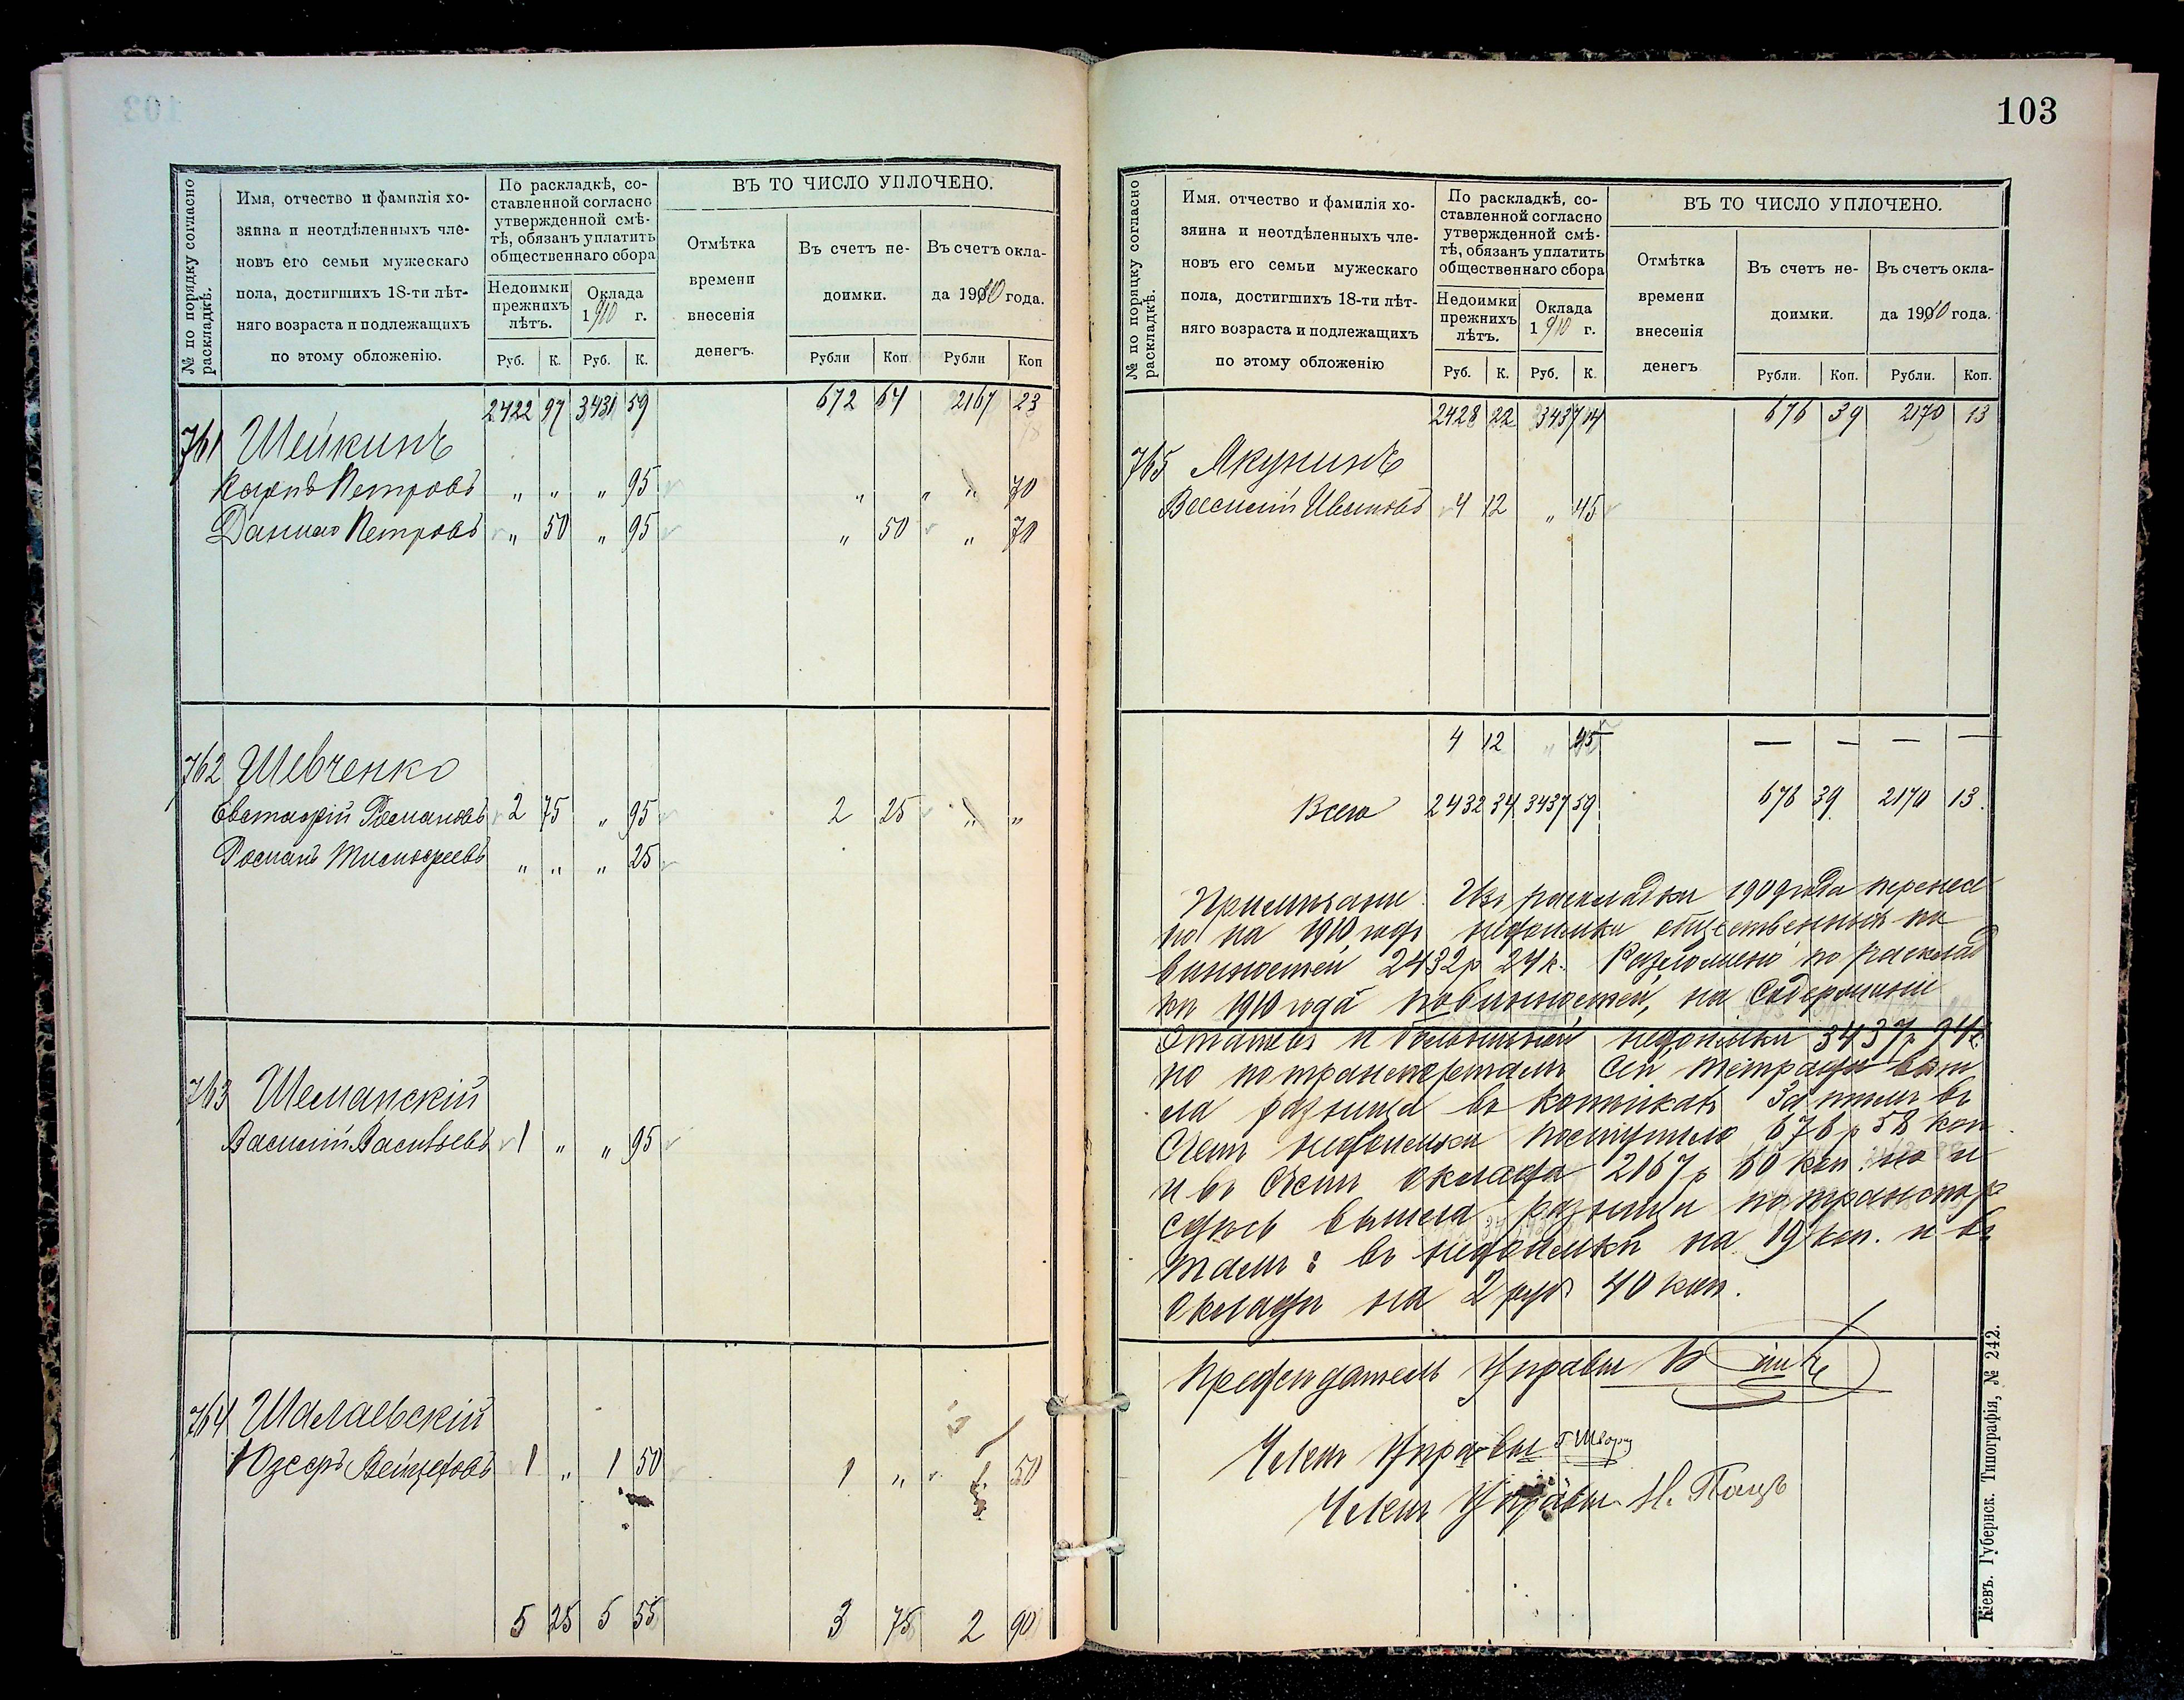 № по порядку согласно раскладкѣ.
Имя, отчество и фамилія хо-
зяина и неотдѣленныхъ чле-
новъ его семьи мужескаго
пола, достигшихъ 18-ти лѣт-
няго возраста и подлежащихъ
по этому обложенію.
По раскладкѣ, со-
ставленной согласно
утвержденной смѣ-
тѣ, обязанъ уплатить
общественнаго сбора
Недоимки
прежнихъ
лѣтъ.
Оклада
1910 г.
Руб. К. Руб. К.
ВЪ ТО ЧИСЛО УПЛОЧЕНО.
Отмѣтка
времени
внесенія
денегъ.
Въ счетъ не-
доимки.
Въ счетъ окла-
да 1910 года.
Рубли Коп. Рубли Коп
2422 97 3431 59 672 64 2167 23
761 Шейкинъ
Карпъ Петровъ " " " 95 " " " 70
Данило Петровъ " 50 " 95 " 50 " 70
762 Шевченко
Евстафій Романовъ 2 75 " 95 2 25 " "
Романъ Тимофеевъ " " " 25
763 Шеманскій
Василій Васильевъ 1 " " 95
764 Шалаевскій
Юзефъ 1 " 1 50 1 " 1 50
5 25 5 55 3 75 2 90
103
№ по порядку согласно раскладкѣ.
Имя, отчество и фамилія хо-
зяина и неотдѣленныхъ чле-
новъ его семьи мужескаго
пола, достигшихъ 18-ти лѣт-
няго возраста и подлежащихъ
по этому обложенію
По раскладкѣ, со-
ставленной согласно
утвержденной смѣ-
тѣ, обязанъ уплатить
общественнаго сбора
Недоимки
прежнихъ
лѣтъ.
Оклада
1910 г.
Руб. К. Руб. К.
ВЪ ТО ЧИСЛО УПЛОЧЕНО.
Отмѣтка
времени
внесенія
денегъ
Въ счетъ не-
доимки.
Въ счетъ окла-
да 1910 года.
Рубли. Коп. Рубли. Коп.
2428 22 3437 14 676 39 2170 13
765 Якунинъ
Василій Ивановъ 4 12 " 45
4 12 " 45 — — — —
Всего 2432 34 3437 59 676 39 2170 13.
Примѣчаніе. Изъ раскладки 1909 года перенес
но на 1910 годъ недоимки общественныхъ по
винностей 2432 р 24 к. Разложено по расклад
кѣ 1910 года повинностей, на содержаніе
и больничной недоимки 3437 р 94 к
но по транспортамъ сей тетради выш
ла разница въ копѣйкахъ За тѣмъ въ
счетъ недоимки поступило 676 р 58 коп
и въ счетъ оклада 2167 р 60 коп. но и
здѣсь вышла разница по транспор
тамъ: въ недоимкѣ на 19 коп. и въ
окладѣ на 2 руб 40 коп.
Предсѣдатель Управы
Членъ Управы Г Шварц
Членъ Управы Н.
Кіевъ. Губернск. Типографія, № 242.